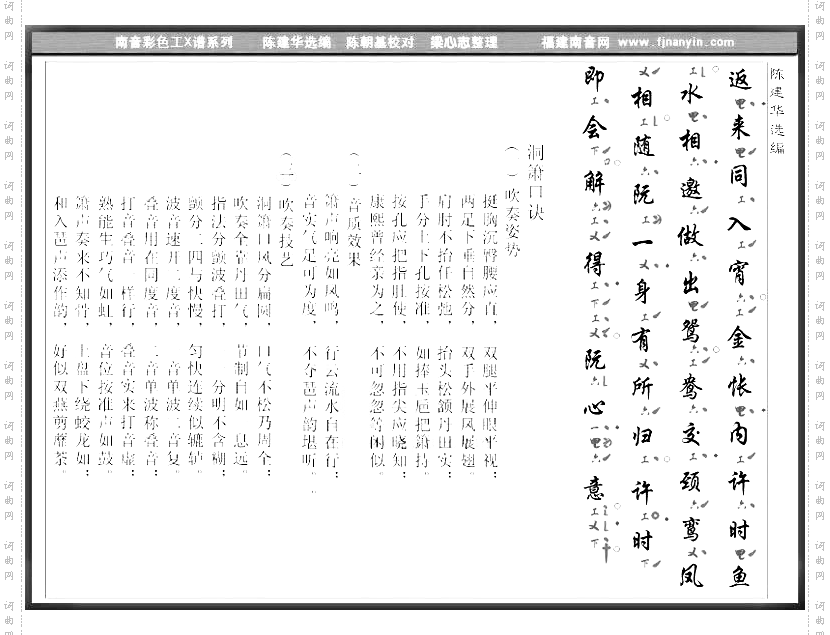 南音彩色工乂谱系列 陈建华选编 陈朝基校对 梁心志整理 福建南音网 www.fjnanyin.com
陈建华选编
返来同入宵金帐内许时鱼
水相邀做出鸳鸯交颈鸾凤
相随阮一身有所归许时
即会解得阮心意
洞箫口诀
(一)吹奏姿势
挺胸沉臀腰应直，双腿平伸眼平视；
两足下垂自然分，双手外展凤展翅。
肩肘不抬任松弛，抬头松颔丹田实；
手分上下孔按准，如捧玉卮把箫持。
按孔应把指肚使，不用指尖应晓知；
康熙曾经亲为之，不可忽忽等闲似。
(二)音质效果
箫声响亮如凤鸣，行云流水自在行；
音实气足可为度，不夺琶声韵堪听。
(三)吹奏技艺
洞箫口风分扁圆，口气不松乃周全；
吹奏全靠丹田气，节制自如 息远。
指法分颤波叠打，分明不含糊；
颤分一四与快慢，匀快连续似辘轳。
波音速升二度音，音单波二音复。
叠音用在同度音，二音单波称叠音；
打音叠音一样行，叠音实来打音虚；
熟能生巧气如虹，音位按准声如鼓。
箫声奏来不知骨，上盘下绕蛟龙如；
和入琶声添作韵，好似双燕剪蘼荼。
词曲网